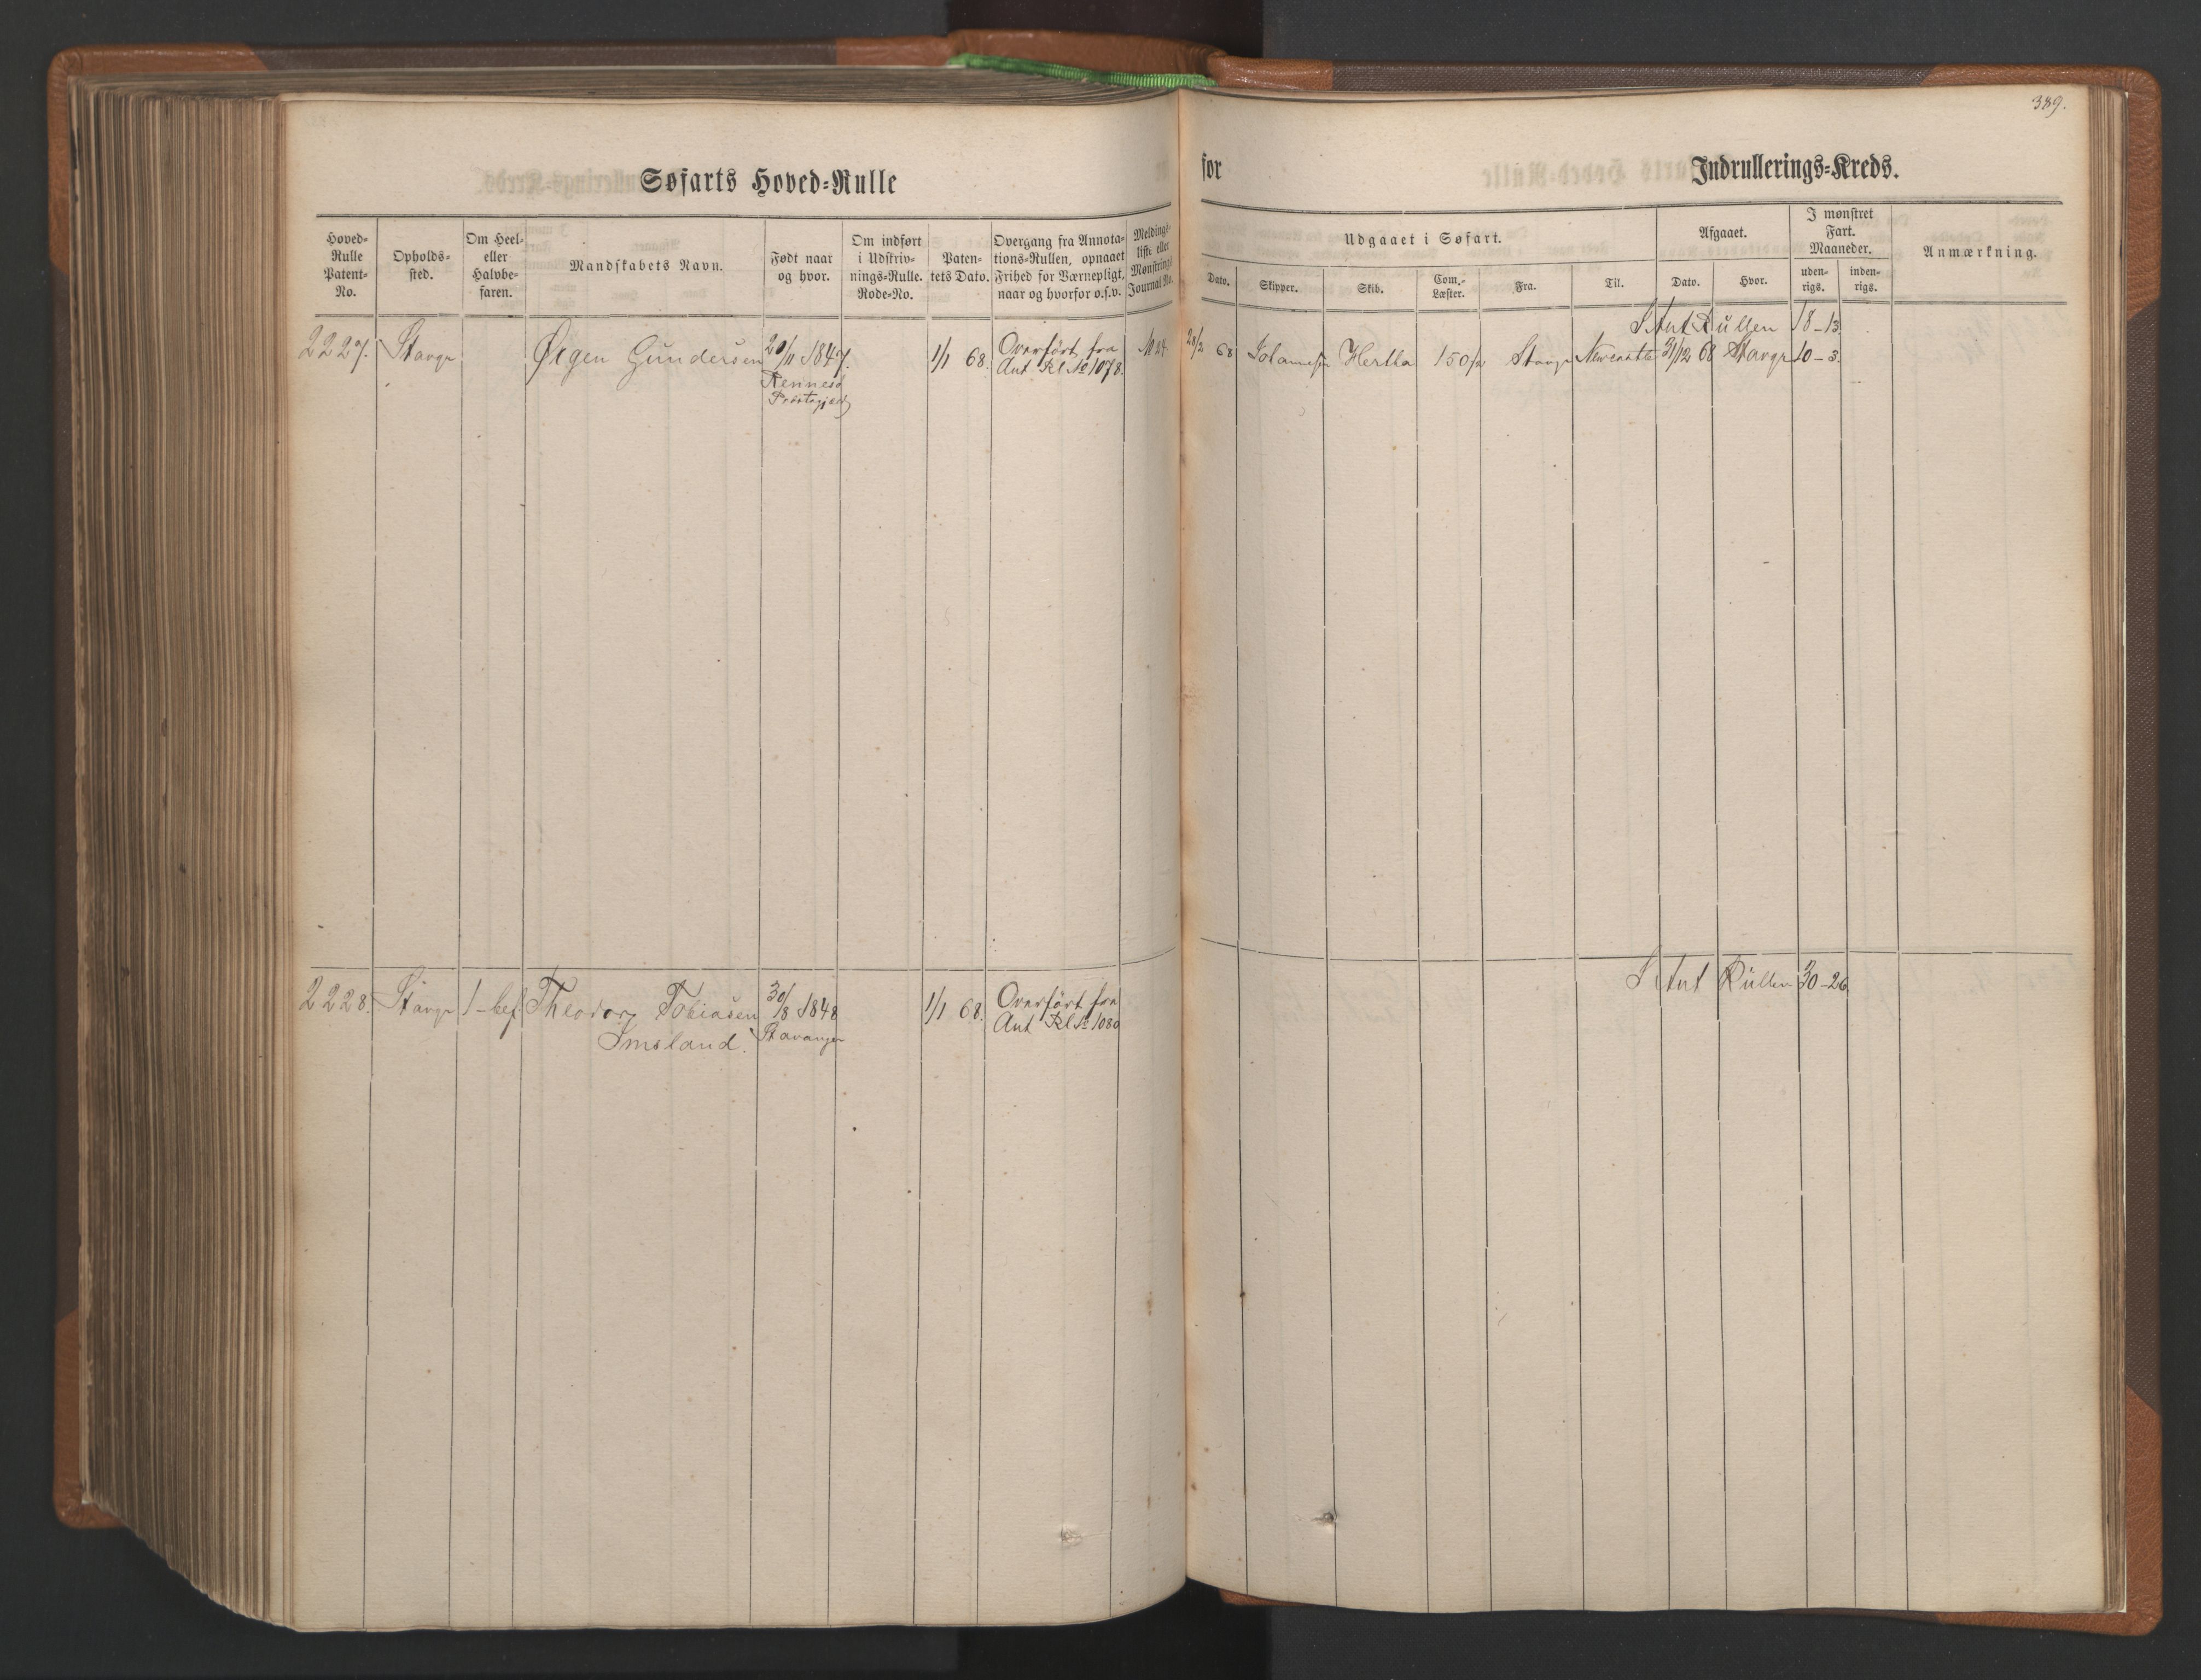 389.
Søfarts Hoved=Rulle
for
Indrullerings=Kreds.
Hoved=
Rulle
Patent=
No.
Opholds=
sted.
Om Heel=
eller
Halvbe=
faren.
Mandskabets Navn.
Født naar
og hvor.
Om indført
i Udskriv=
nings=Rulle.
Rode=No.
Paten=
tets Dato.
Overgang fra Annota=
tions=Rullen, opnaaet
Frihed for Værnepligt,
naar og hvorfor o.s.v.
Meldings=
liste eller
Mønstrings
Journal No.
Udgaaet i Søfart.
Dato.
Skipper.
Skib.
Com.=
Læster.
Fra.
Til.
Afgaaet.
Dato.
Hvor.
I mønstret
Fart.
Maaneder.
uden=
rigs.
inden=
rigs.
Anmærkning.
I Ant Rullen 18-13
2227. Stavgr Ørgen Gundersen 20/11 1847. 1/1 68. Overført fra 68 Hertha 150 1/2 Stavgr Newcastle 31/12 68 Stavgr 10-3.
Rennesø Ant Rl No 1078.
Præstegjæld
2228. Stavgr 1-bef. Theodor Tobiasen 30/8 1848 1/1 68. Overført fra I Ant Rullen 30-26
Imsland. Stavanger Ant Rl No 1080